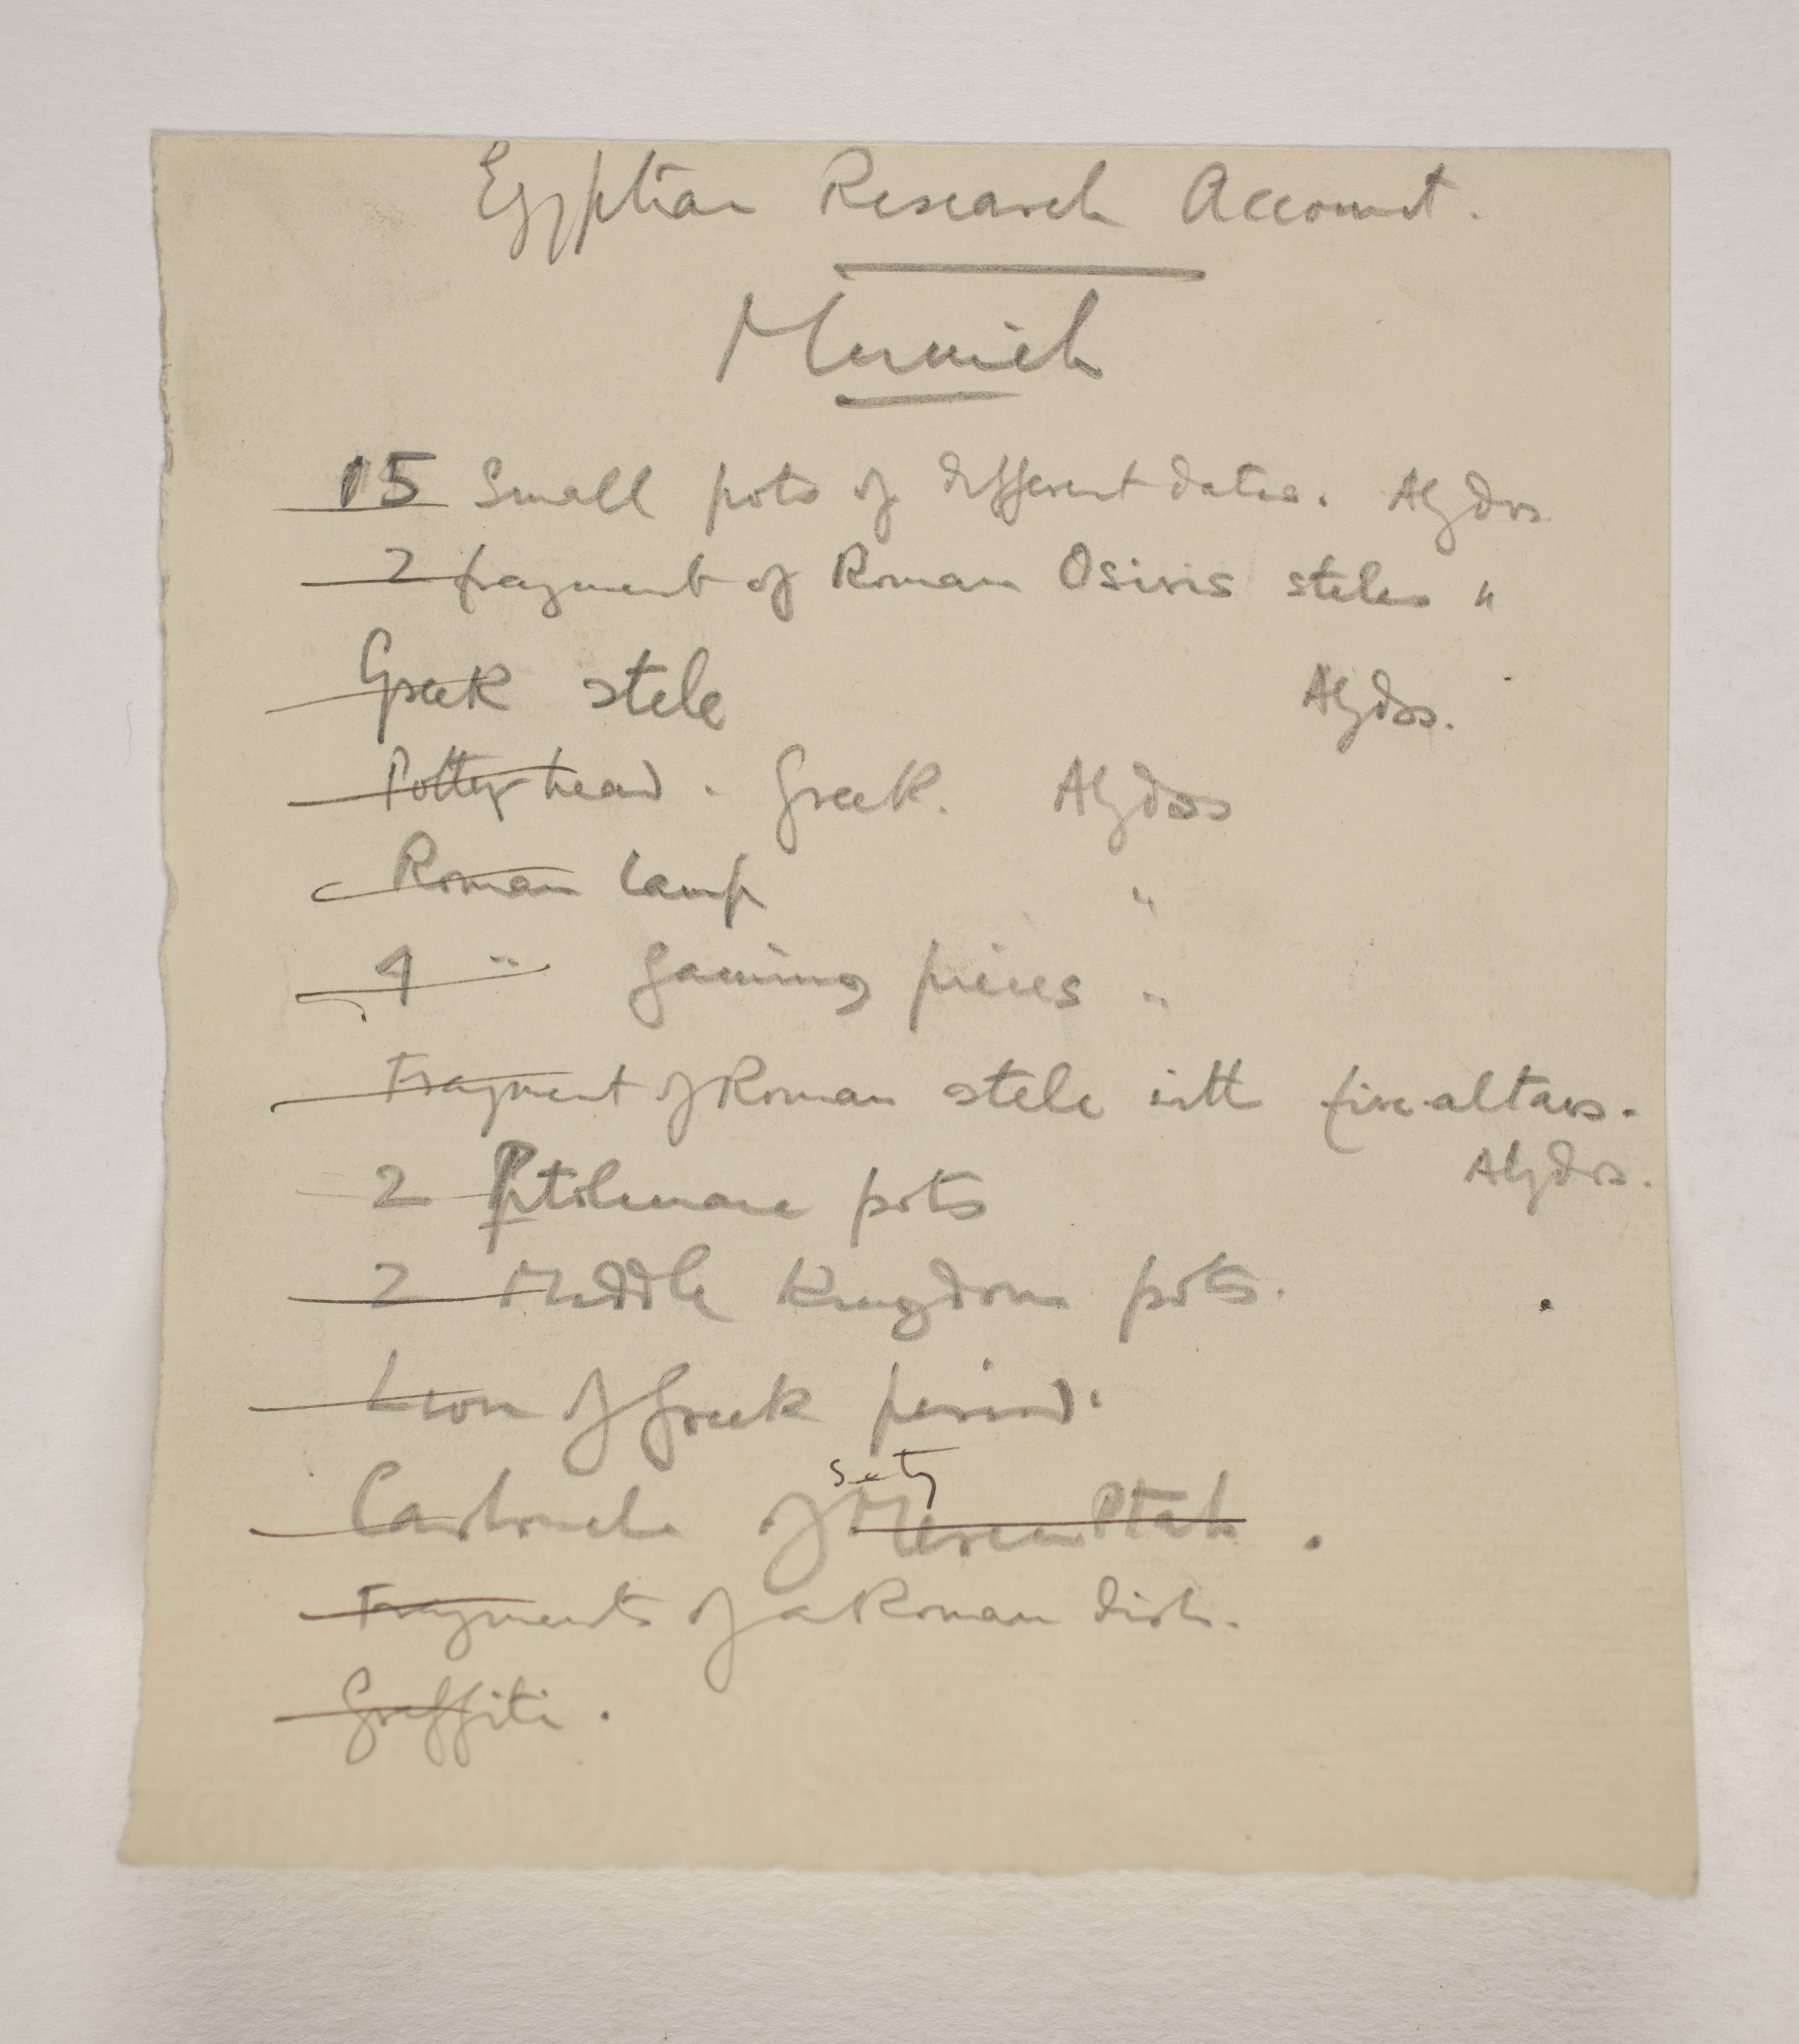 Egyptian Research Account.
Munich
15 Small pots of different dates. Abydos
2 fragment of Roman Osiris steles "
Greek stele Abydos.
Pottery head. Greek. Abydos
Roman lamp "
4 " Gaming pieces "
Fragment of Roman stele with fire-altars.
Abydos.
2 Ptolemaic pots
2 Middle Kingdom pots.
Lion of Greek period.
Sety
Cartouche of MerenPtah.
Fragments of a Roman dish.
Graffiti.